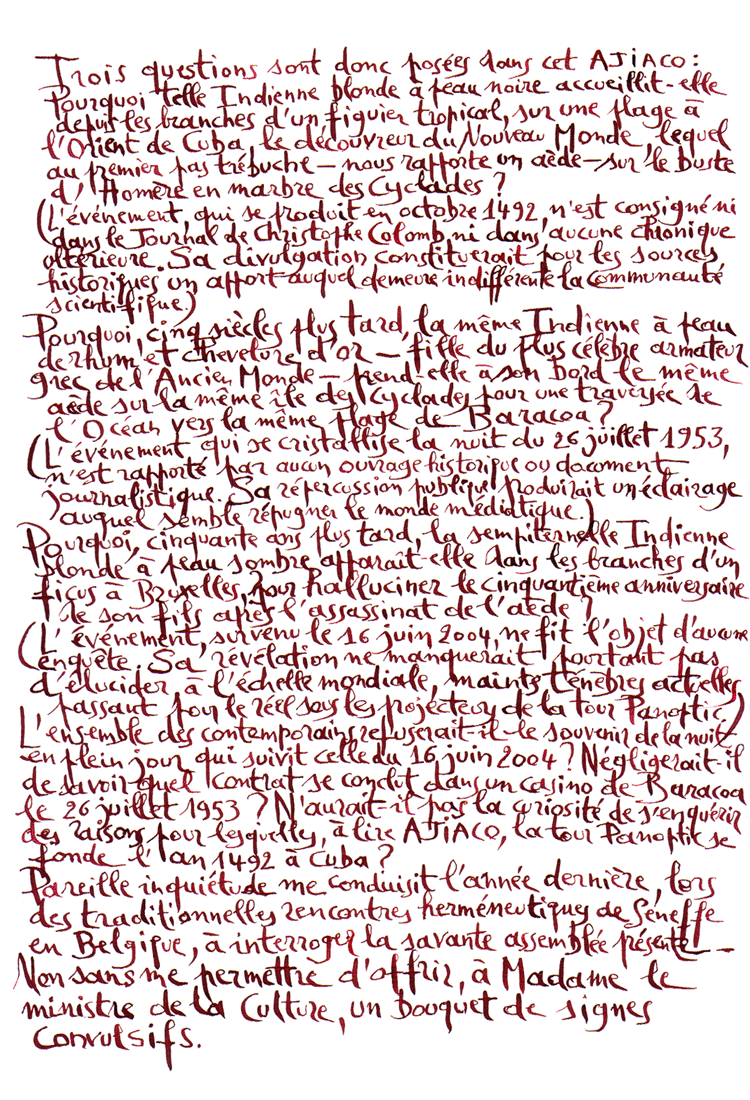 Trois questions sont donc posées dans cet AJIACO :
Pourquoi telle Indienne blonde à peau noire accueillit-elle
depuis les branches d'un figuier tropical, sur une plage à
l'Orient de Cuba, le découvreur du Nouveau Monde, lequel
au premier pas trébuche – nous rapporte un aède – sur le buste
d'Homère en marbre des Cyclades ?
(L'événement, qui se produit en octobre 1492, n'est consigné ni
dans le Journal de Christophe Colomb, ni dans aucune chronique
ultérieure. Sa divulgation constituerait pour les sources
historiques un apport auquel demeure indifférente la Communauté
scientifique)
Pourquoi, cinq siècles plus tard, la même Indienne à peau
de rhum et chevelure d'or – fille du plus célèbre armateur
grec de l'Ancien Monde – prend-elle à son bord le même
aède sur la même île des Cyclades pour une traversée de
l'Océan vers la même plage de Baracoa ?
(L'événement, qui se cristallise la nuit du 26 juillet 1953,
n'est rapporté par aucun ouvrage historique ou document
journalistique. Sa répercussion publique produirait un éclairage
auquel semble répugner le monde médiatique.)
Pourquoi, cinquante ans plus tard, la sempiternelle Indienne
blonde à peau sombre apparaît-elle dans les branches d'un
ficus à Bruxelles, pour halluciner le cinquantième anniversaire
de son fils après l'assassinat de l'aède ?
(L'événement, survenu le 16 juin 2004, ne fit l'objet d'aucune
enquête. Sa révélation ne manquerait pourtant pas
d'élucider, à l'échelle mondiale, maintes ténèbres actuelles
passant pour le réel sous les projecteurs de la tour Panoptic)
L'ensemble des contemporains refuserait-il le souvenir de la nuit
en plein jour qui suivit celle du 16 juin 2004 ? Négligerait-il
de savoir quel contrat se conclut dans un casino de Baracoa
le 26 juillet 1953 ? N'aurait-il pas la curiosité de s'enquérir
des raisons pour lesquelles, à lire AJIACO, la tour Panoptic se
fonde l'an 1492 à Cuba ?
Pareille inquiétude me conduisit l'année dernière, lors
des traditionnelles rencontres herméneutiques de Seneffe
en Belgique, à interroger la savante assemblée présente. –
Non sans me permettre d'offrir, à Madame le
ministre de la Culture, un bouquet de signes
convulsifs.